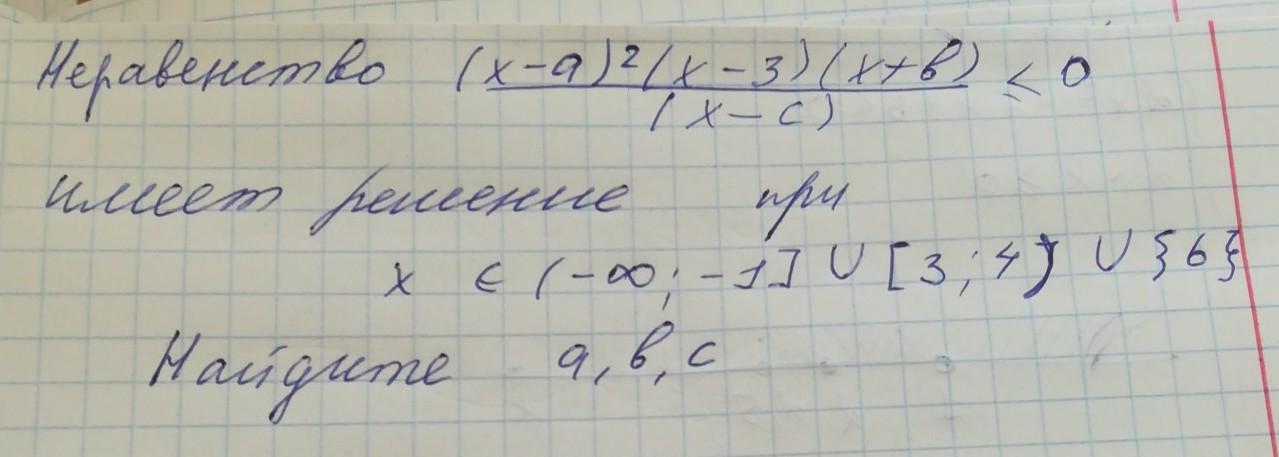 Неравенство (x-a)²(x-3)(x+в) / (x-c) ≤ 0
имеет решение при
x ∈ (-∞; -1] ∪ [3; 4) ∪ {6}
Найдите a, в, c